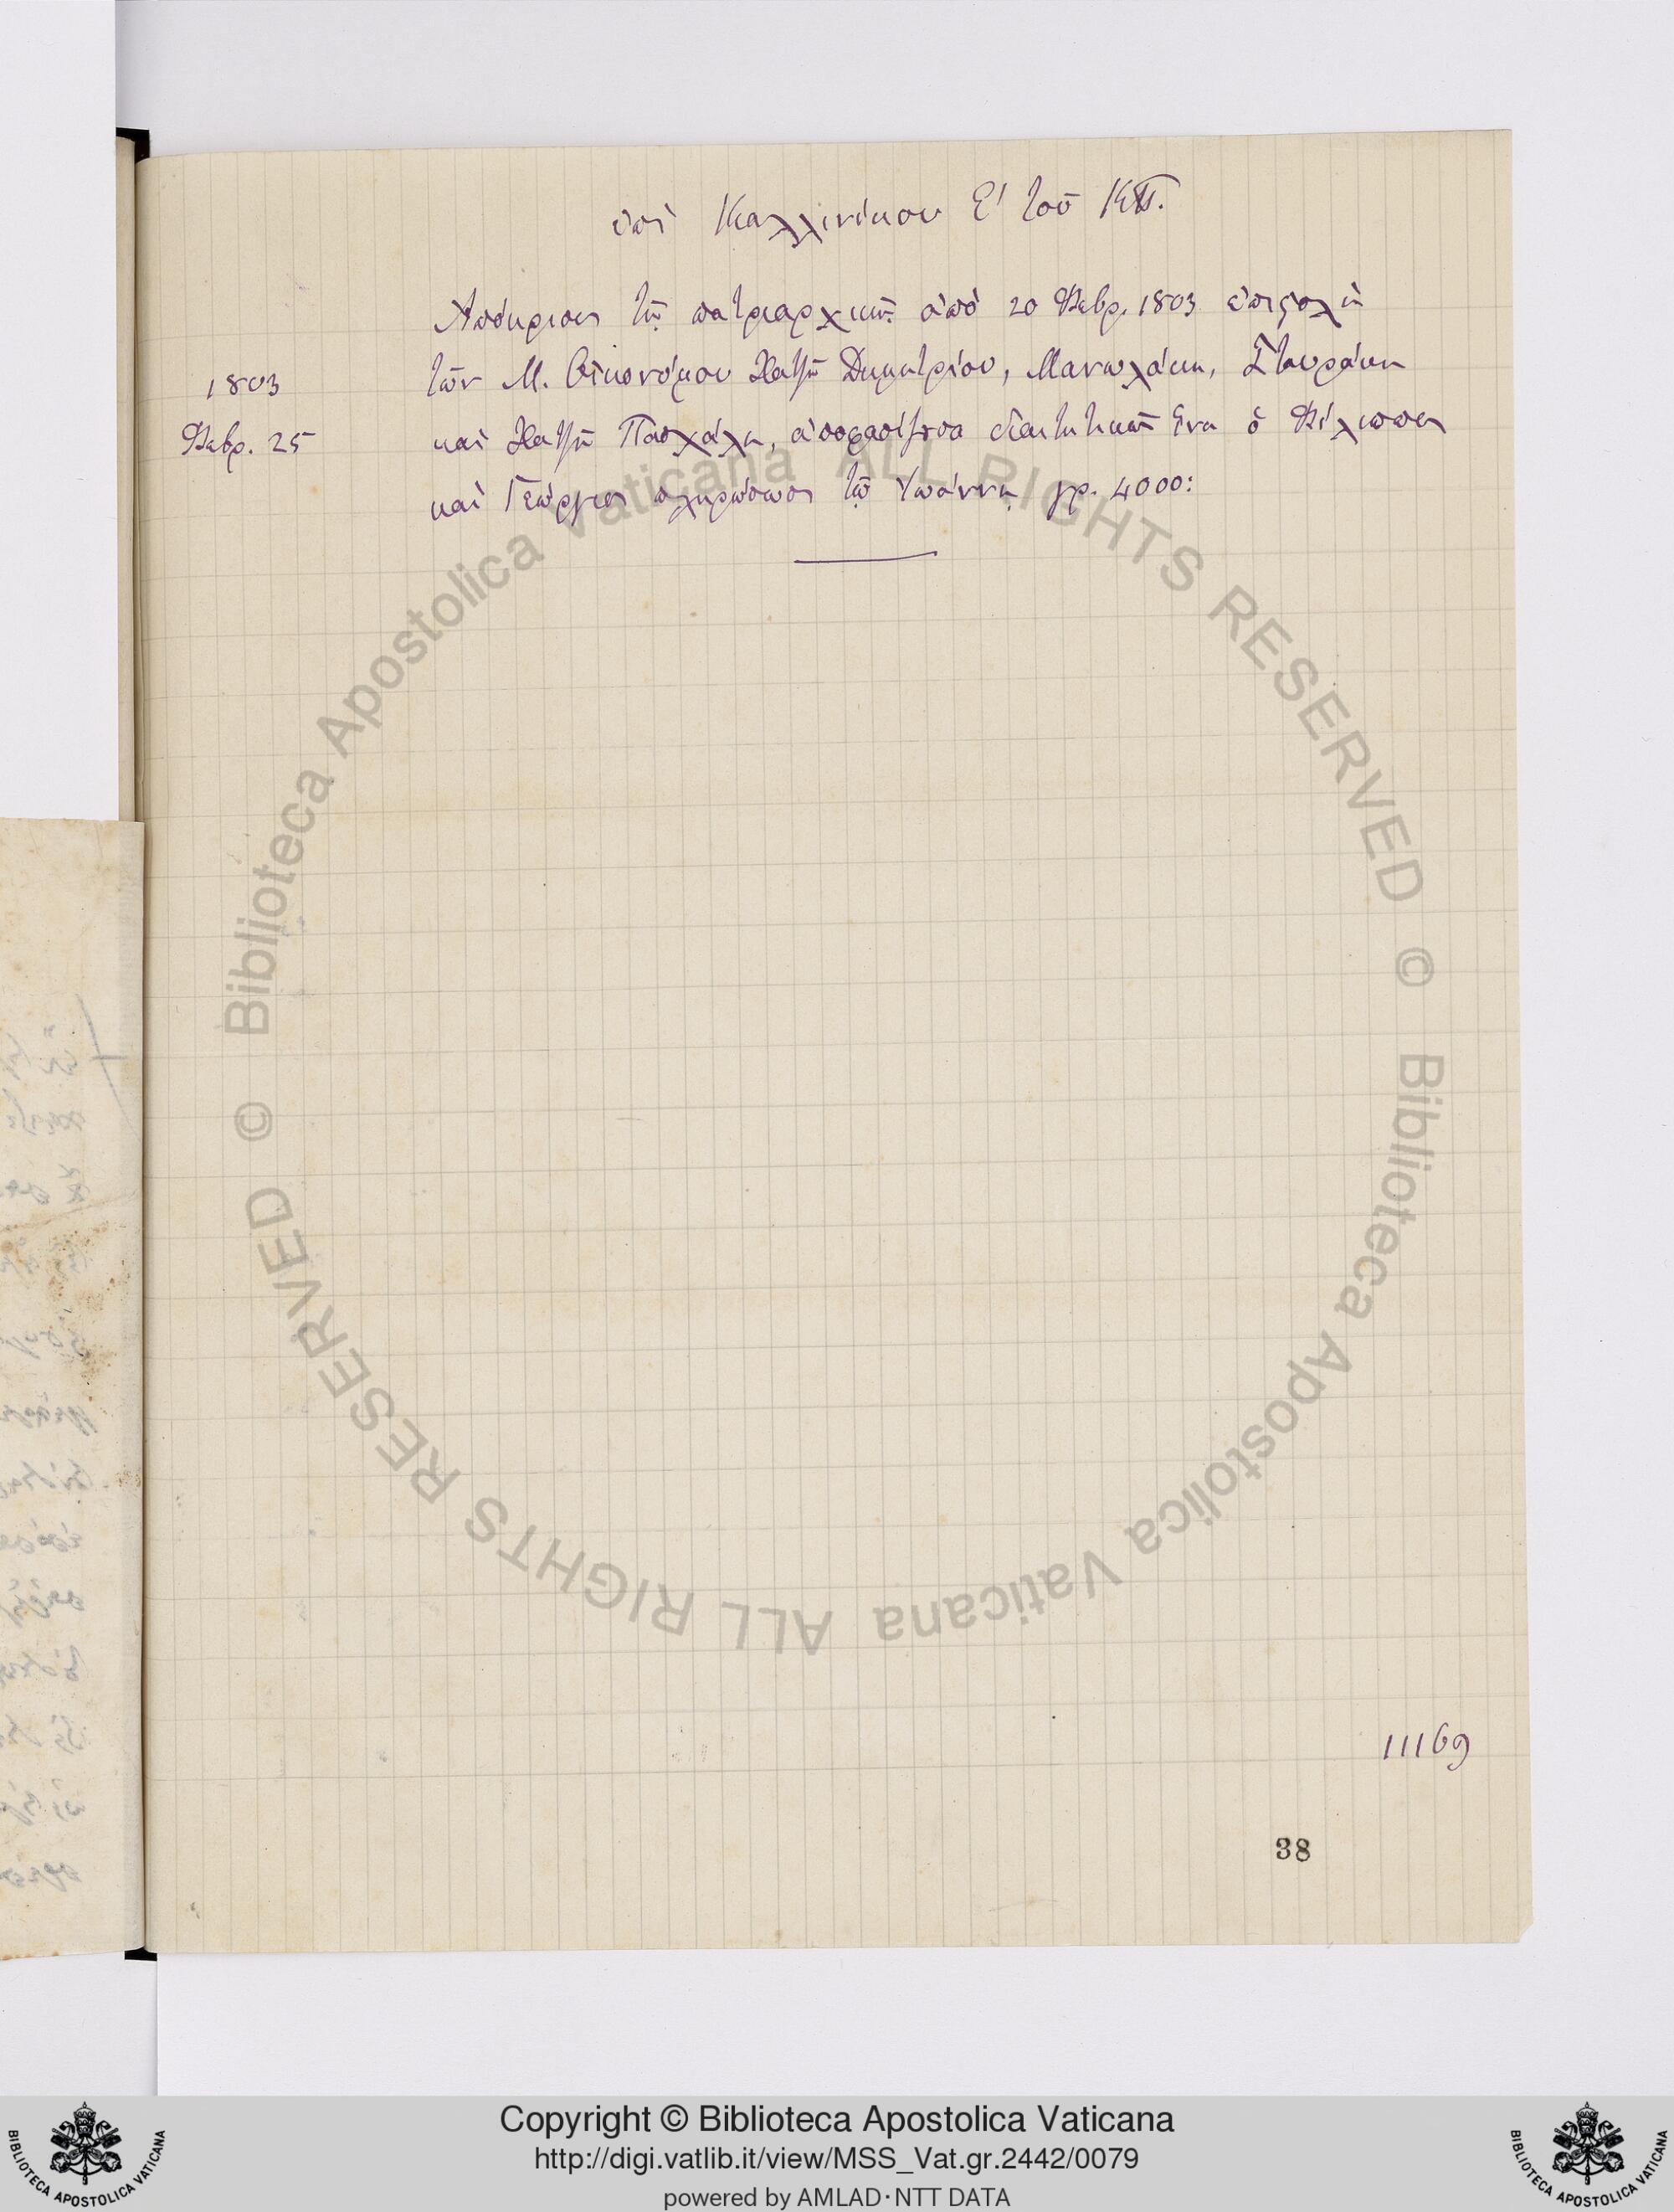 ἐπὶ Καλλινίκου Ε' τοῦ ΚΠ.
Ἀπόκρισις τῇ πατριαρχικῇ ἀπὸ 20 Φεβρ. 1803 ἐπιστολῇ
1803
τῶν Μ. Οἰκονόμου Χατζῆ Δημητρίου, Μανωλάκη, Σταυράκη
Φεβρ. 25
καὶ Χατζῆ Πασχάλη, ἵνα ὁ Φίλιππος
καὶ Γεώργιος πληρώσωσι τῷ Ἰωάννῃ γρ. 4000:
11169
38
© Biblioteca Apostolica Vaticana ALL RIGHTS RESERVED
© Biblioteca Apostolica Vaticana ALL RIGHTS RESERVED
Copyright © Biblioteca Apostolica Vaticana
http://digi.vatlib.it/view/MSS_Vat.gr.2442/0079
powered by AMLAD·NTT DATA
BIBLIOTECA APOSTOLICA VATICANA
BIBLIOTECA APOSTOLICA VATICANA